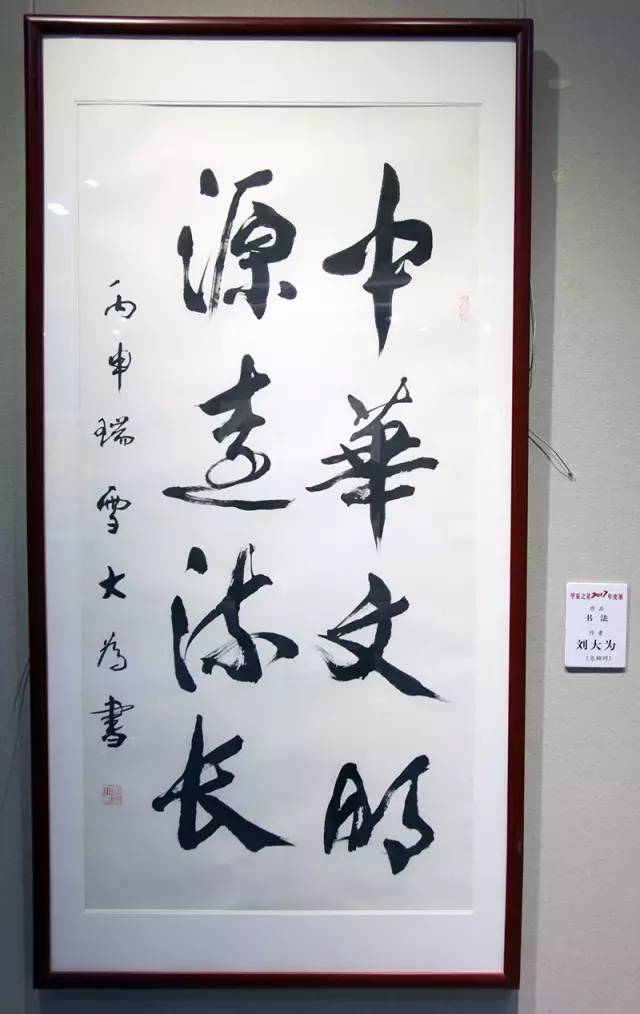 中華文明
源遠流长
丙申瑞雪大為書
华夏之星2017年度展
作品
书法
作者
刘大为
(总顾问)